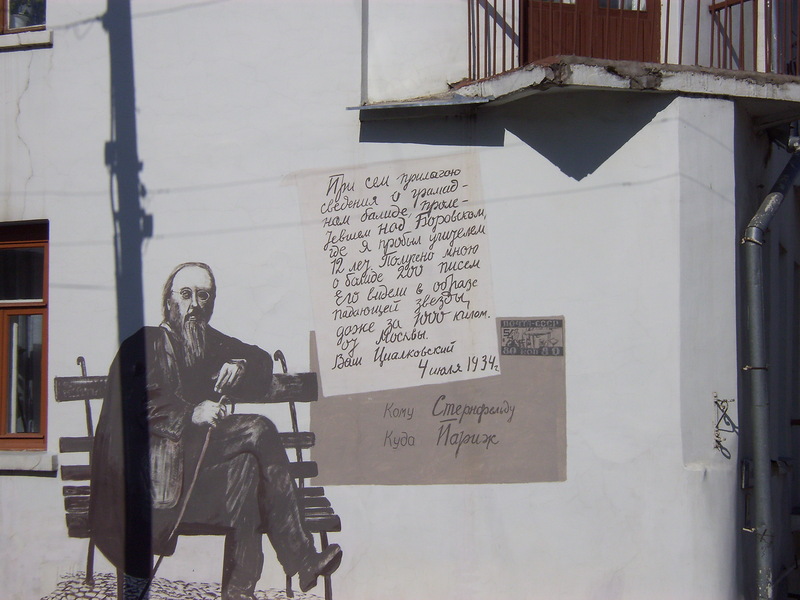 При сем прилагаю
сведения о громад-
ном болиде, проле-
тевшем над Боровском,
где я пробыл учителем
12 лет. Получено мною
о болиде 200 писем
Его видели в образе
падающей звезды,
даже за 1000 килом.
от Москвы.
Ваш Циалковский
4 июля 1934г.
ПОЧТА-СССР
Кому Стернфельду
Куда Париж